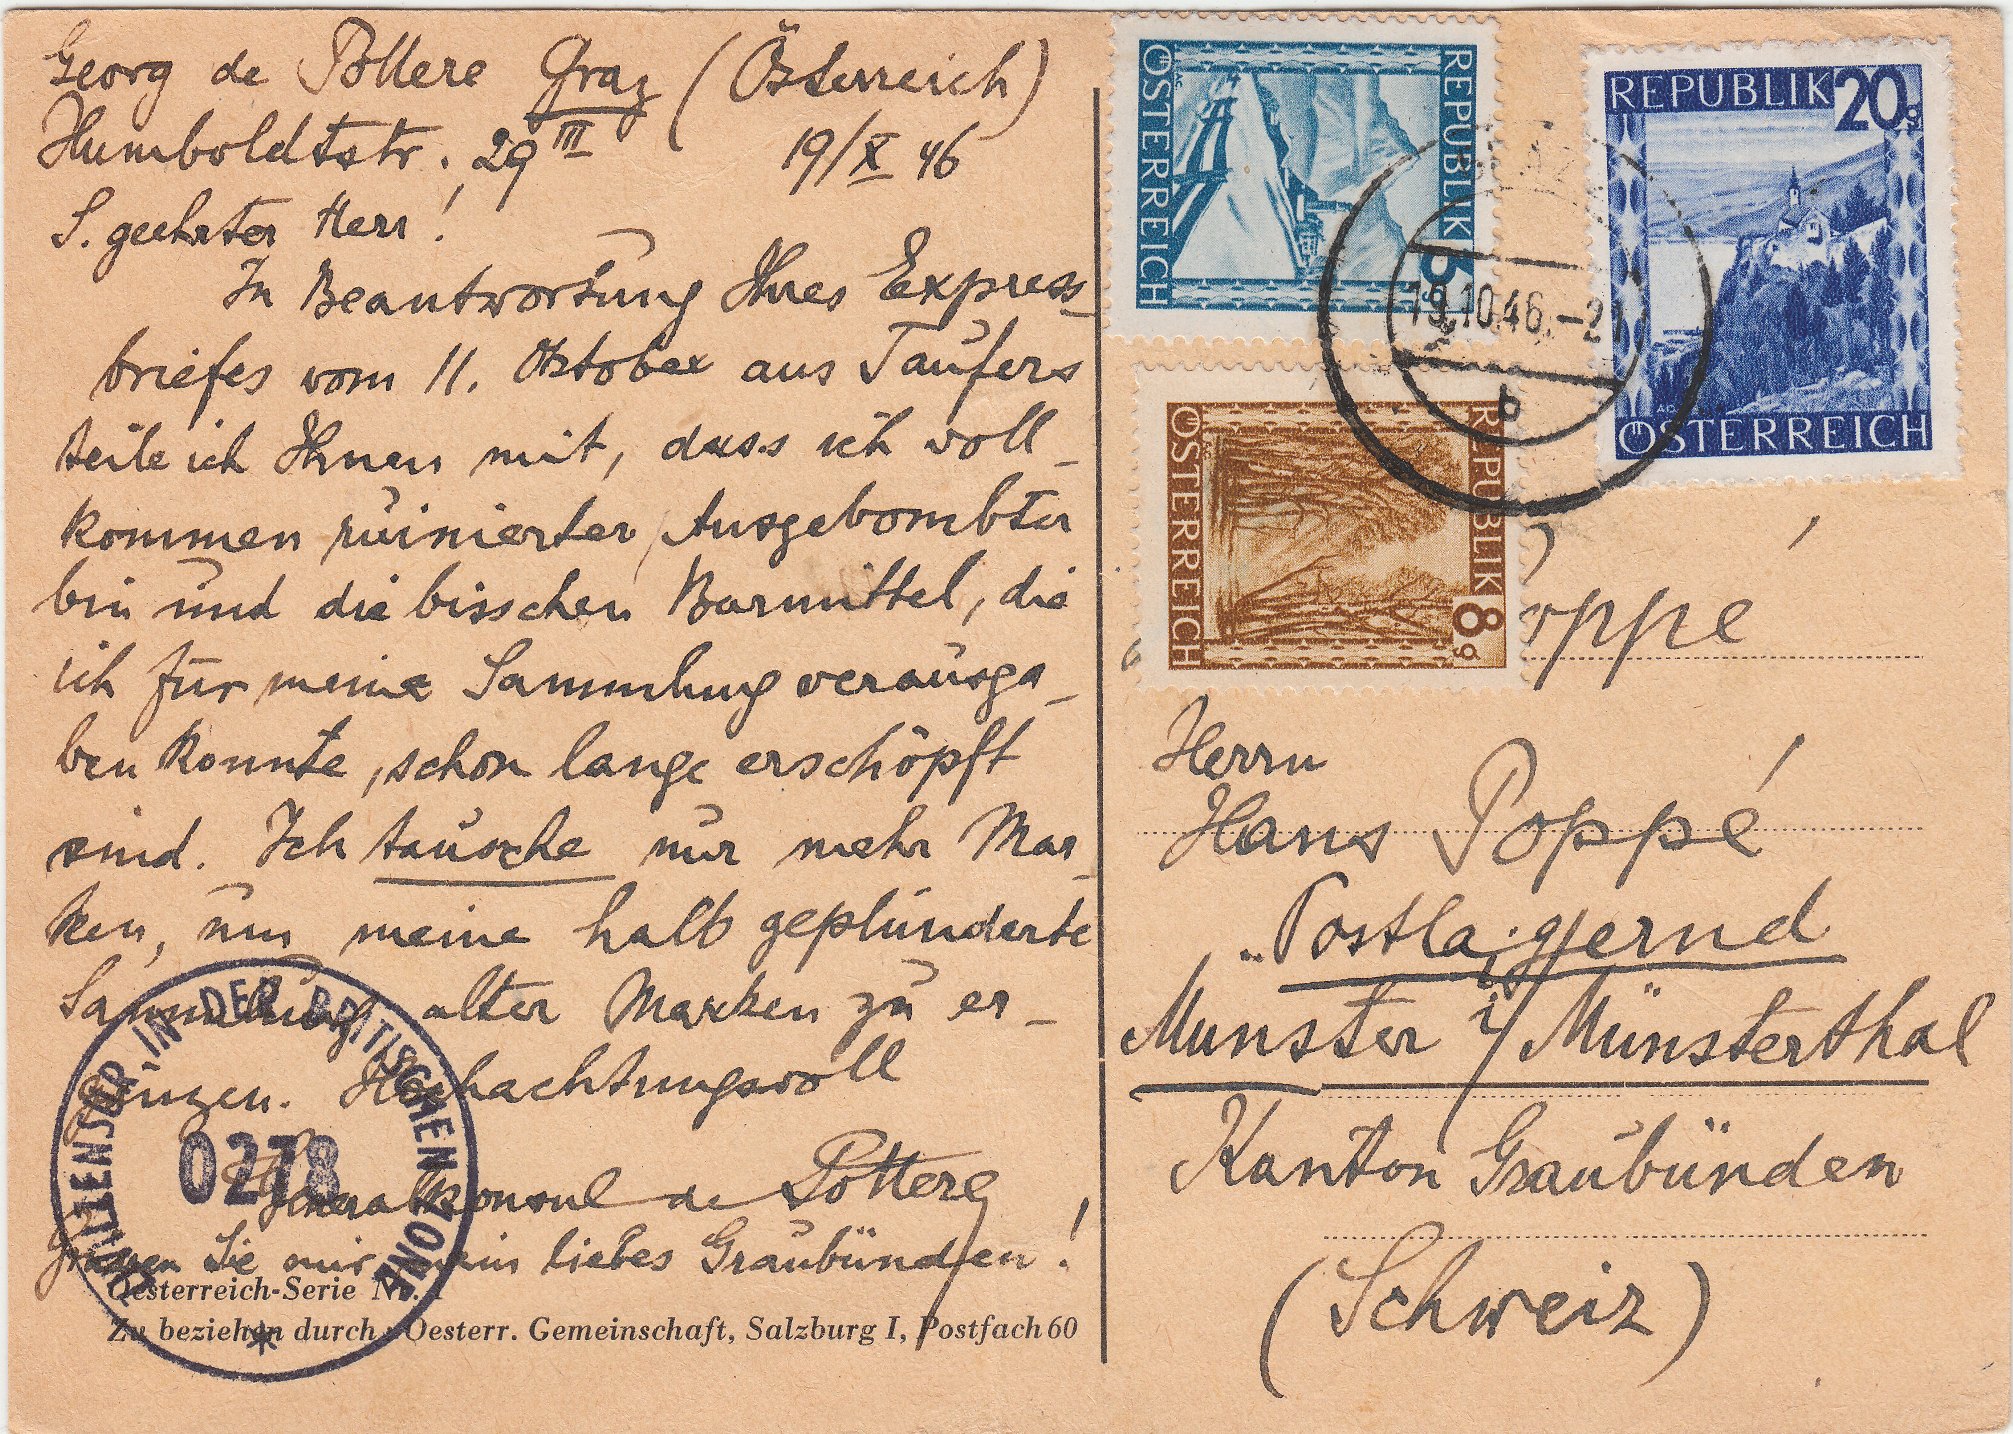 Georg de Pottere Graz (Österreich)
Humboldtstr. 29 III 19/X 46
S. geehrter Herr!
In Beantwortung Ihres Express-
briefes vom 11. Oktober aus Taufers
teile ich Ihnen mit, dass ich voll-
kommen ruinierter Ausgebombter
bin und die bisschen Barmittel, die
ich für meine Sammlung verausga-
ben konnte, schon lange erschöpft
sind. Ich tausche nur mehr Mar-
ken, um meine halb geplünderte
Sammlung alter Marken zu er-
gänzen. Hochachtungsvoll
Generalkonsul de Pottere
Grüssen Sie mir mein liebes Graubünden!
Oesterreich-Serie Nr. 1
Zu beziehen durch: Oesterr. Gemeinschaft, Salzburg I, Postfach 60
ZIVILZENSUR IN DER BRITISCHEN ZONE
0278
REPUBLIK
ÖSTERREICH
5
REPUBLIK
ÖSTERREICH
8g
REPUBLIK 20g
ÖSTERREICH
GRAZ
19.10.46.-21
b
oppé
Herrn
Hans Poppé
Postlagernd
Munster i/Münsterthal
Kanton Graubünden
(Schweiz)